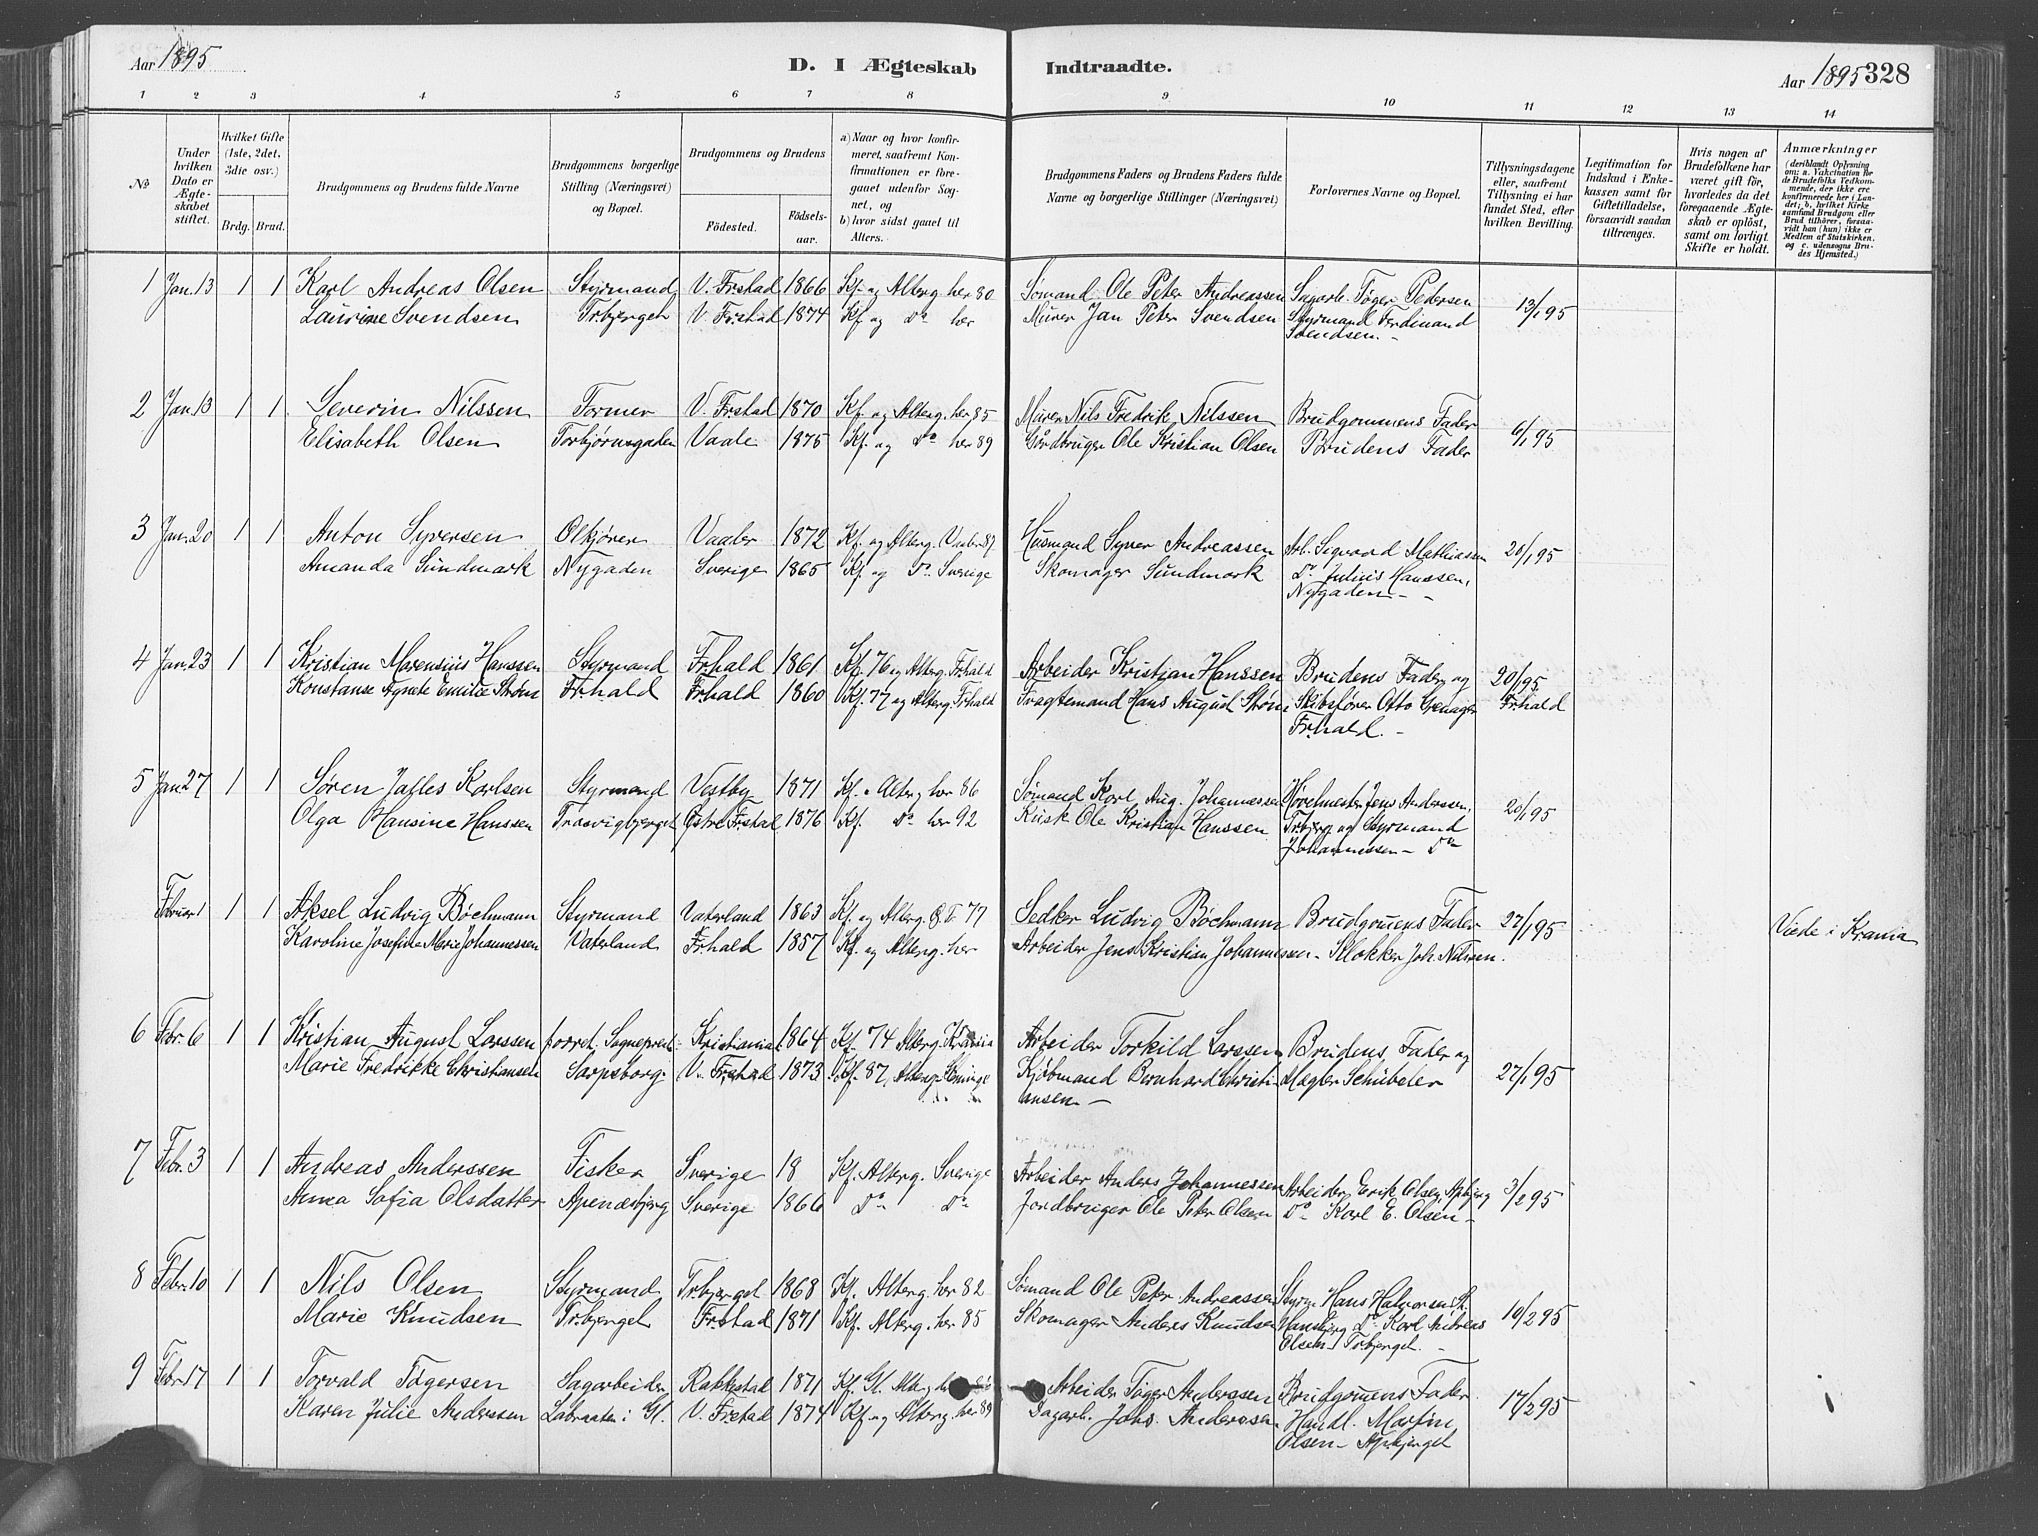 Aar 1895
D. I Ægteskab Indtraadte.
Aar 1895 328
1 2 3 4 5 6 7 8 9 10 11 12 13 14
№
Under hvilken Dato er Ægteskabet stiftet.
Hvilket Gifte (1ste, 2det, 3die osv.)
Brdg. Brud.
Brudgommens og Brudens fulde Navne
Brudgommens borgerlige Stilling (Næringsvei) og Bopæl.
Brudgommens og Brudens
Fødested.
Fødselsaar.
a) Naar og hvor konfirmeret, saafremt Konfirmationen er foregaaet udenfor Sognet, og
b) hvor sidst gaaet til Alters.
Brudgommens Faders og Brudens Faders fulde Navne og borgerlige Stillinger (Næringsvei)
Forlovernes Navne og Bopæl.
Tillysningsdagene eller, saafremt Tillysning ei har fundet Sted, efter hvilken Bevilling.
Legitimation for Indskud i Enkekassen samt for Giftetilladelse, forsaavidt saadan tiltrænges.
Hvis nogen af Brudefolkene har været gift før, hvorledes da det foregaaende Ægteskab er opløst, samt om lovligt Skifte er holdt.
Anmærkninger
(deriblandt Oplysning om: a. Vakcination for de Brudefolks Vedkommende, der ikke ere konfirmerede her i Landet; b. hvilket Kirkesamfund Brudgom eller Brud tilhører, forsaavidt han (hun) ikke er Medlem af Statskirken, og c. udensogns Brudes Hjemsted.)
1 Jan. 13 1 1 Karl Andreas Olsen Styrmand V. Frstad 1866 Kf. og Alterg. her 80 Sømand Ole Peter Andreassen Sagarb. Tøger Pedersen 13/1 95
Laurine Svendsen Trbjerget V. Frstad 1874 Kf. og Do her Murer Jan Peter Svendsen Styrmand Ferdinand
Svendsen. -
2 Jan. 13 1 1 Severin Nilssen Former V. Frstad 1870 Kf. og Alterg. her 85 Murer Nils Fredrik Nilssen Brudgommens Fader 6/1 95
Elisabeth Olsen Torbjørnsgaden Vaale 1875 Kf. og Do her 89 Gårdbruger Ole Kristian Olsen Brudens Fader
3 Jan. 20 1 1 Anton Syversen Olkjører Vaaler 1872 Kf. og Alterg. Vaaler 87 Husmand Syver Andreassen Arb. Sigvard Mathiassen 20/1 95
Amanda Sundmark Nygaden Sverige 1865 Kf. og Do Sverige Skomager Sundmark Do Julius Hanssen,
Nygaden -
4 Jan. 23 1 1 Kristian Marensius Hanssen Styrmand Frhald 1861 Kf. 76 og Alterg. Frhald Arbeider Kristian Hanssen Brudens Fader og 20/1 95
Konstanse Agnete Emilie Strøm Frhald Frhald 1860 Kf. 77 og Alterg. Frhald Fragtemand Hans August Strøm Skibsfører Otto Grenager Frhald
Frhald. -
5 Jan 27 1 1 Søren Jalles Karlsen Styrmand Vestby 1871 Kf. o Alterg her 86 Sømand Karl Aug. Johannessen Høvelmester Jens Anderssen, 20/1 95
Olga Hansine Hanssen Trosvigbjerget Østre Frstad 1876 Kf. Do her 92 Kusk Ole Kristian Hanssen Trbjerg og Styrmand
Johannessen - Do
Februar 1 1 1 Aksel Ludvig Bøchmann Styrmand Vaterland 1863 Kf. og Alterg. 77 Ludvig Bøchmann Brudgomens Fader 27/1 95
Karoline Josefine Marie Johannessen Vaterland Frhald 1857 Kf. og Alterg. her Arbeider Jens Kristian Johannessen - Klokker Joh. Nilssen. Viede i Krania
6 Febr. 6 1 1 Kristian August Larssen Kristiania 1864 Kf. 74 Alterg. Krania Arbeider Torkild Larssen Brudens Fader og 27/1 95
Marie Fredrikke Christiansen Sarpsborg. V. Frstad 1873 Kf. 87, Alterg. Kjøbmand Bernhard Christi- Mægler Schübeler
ansen -
7 Febr. 3 1 1 Andreas Anderssen Fisker Sverige 18 Kf. Alterg. Sverige Arbeider Anders Johannessen Arbeider Erik Olsen, Apbjerg 3/2 95
Anna Sofia Olsdatter Apenæsbjerg Sverige 1866 Do Do Jordbruger Ole Peter Olsen Do Karl E. Olsen -
8 Febr. 10 1 1 Nils Olsen Styrmand Trbjerget 1868 Kf. Alterg. her 82 Sømand Ole Peter Andreassen Styrm. Hans Halvorsen 10/2 95
Marie Knudsen Trbjerget Frstad 1871 Kf. Alterg. her 85 Skomager Anders Knudsen Do Karl Andreas
Olsen - Trbjerget. -
9 Febr. 17 1 1 Torvald Tøgersen Sagarbeider Rakkestad 1871 Kf. Gl. Alterg. Arbeider Tøger Anderssen Brudgomens Fader 17/2 95
Karen Julie Anderssen Labraaten i Gl. V. Frstad 1874 Kf. og Alterg. her 89 Dagarb. Johs. Anderssen Handl. Martin
Olsen - Apbjerget